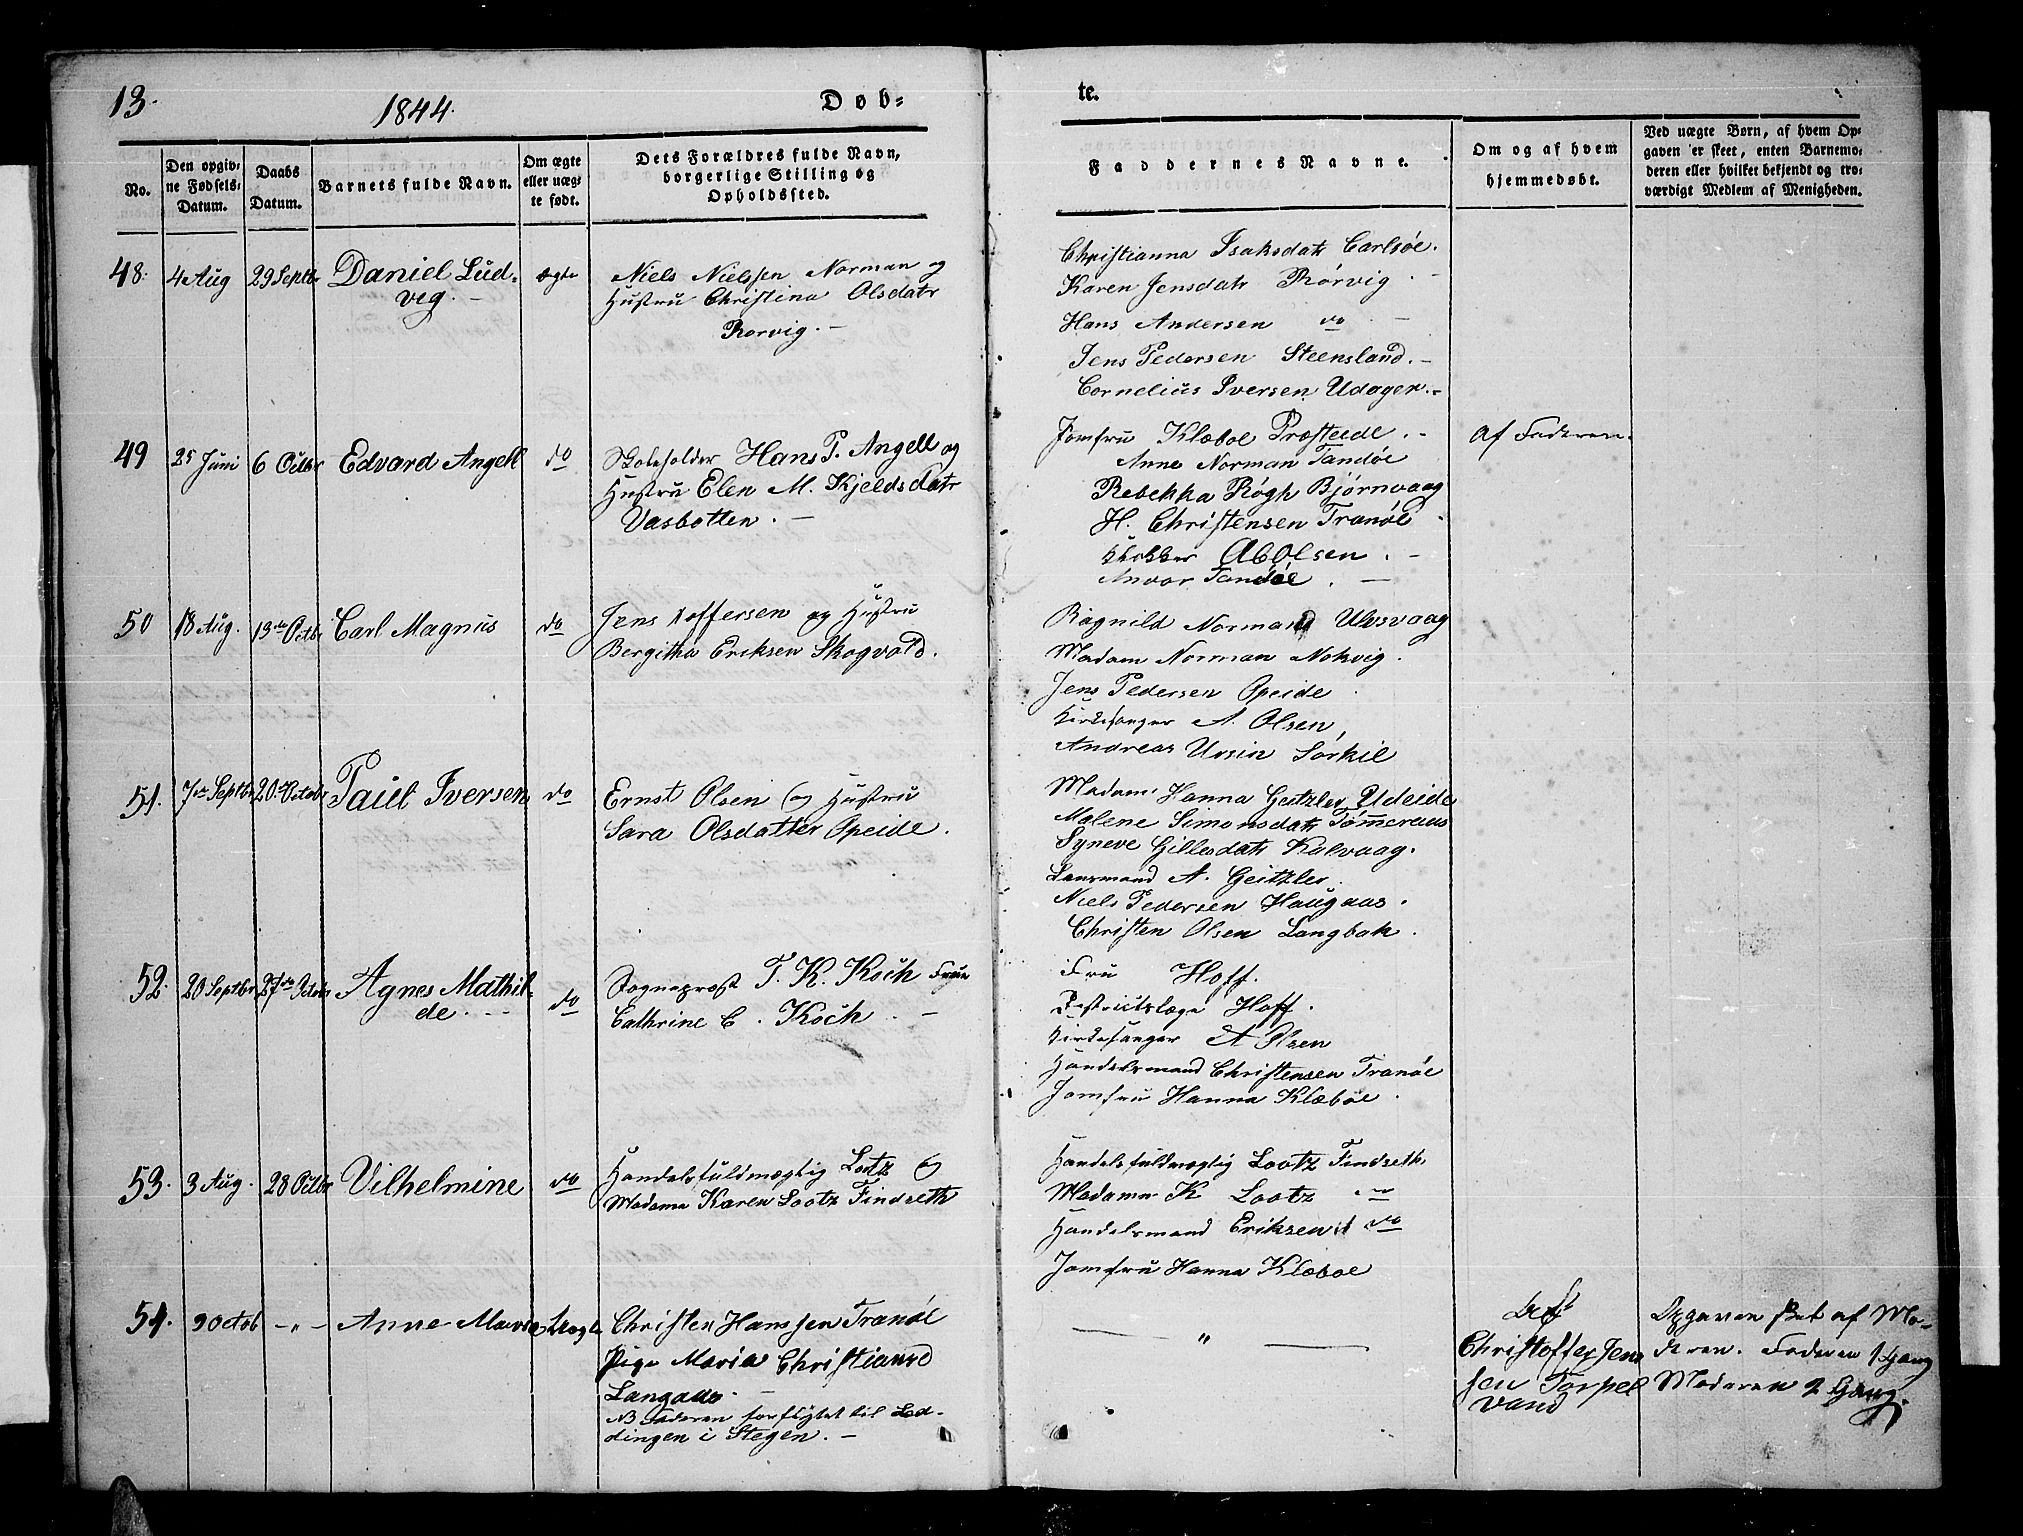 13.
1844.
Døb-
te.
No.
Den opgiv-
ne Fødsels-
Datum.
Daabs
Datum.
Barnets fulde Navn.
Om ægte
eller uæg-
te født.
Dets Forældres fulde Navn,
borgerlige Stilling og
Opholdssted.
Faddernes Navne.
Om og af hvem
hjemmedøbt.
Ved uægte Børn, af hvem Op-
gaven er skeet, enten Barnemo-
deren eller hvilket bekjendt og tro-
værdigt Medlem af Menigheden.
48. 4 Aug 29 Septbr Daniel Lud-
vig. -
ægte
Niels Nielssen Norman og
Hustru Christina Olsdatr
Rorvig. -
Christianna Isaksdatr Carlsøe.
Karen Jensdatr Rørvig -
Hans Andersen do -
Jens Pedersen Steensland. -
Cornelius Iversen Udager. -
49 25 Juni 6 Octbr Edvard Angell do
Skoleholder Hans P. Angell og
Hustru Elen M. Kjeldsdatr
Vasbotten. -
Jomfru Klæboe Præsteide. -
Anne Norman Tandøe
Rebekka Røgh Bjørnvaag
H. Christensen Tranøe
Klokker Ab Olsen. -
Tandøe. -
af Faderen.
50 18 Aug. 13de Octbr Carl Magnus do
Jens Toffersen og Hustru
Bergitha Eriksen Skogvold.
Ragnild Norman Ulvsvaag
Madam Norman Nokvig.
Jens Pedersen Opeide
Kirkesanger A. Olsen,
Andreas Ursin Sørkil
51. 7de Septbr 20de Octobr Paul Iversen do
Ernst Olsen og Hustru
Sara Olsdatter Opeide.
Madam Hanna Geitzler Udeide
Malene Simonsdatr Tømeraas
Syneve Gillesdatr Kalvaag.
Lensmand A. Geitzler.
Niels Pedersen Haugaas.
Christen Olsen Langbak.
52. 20 Septbr 27de Octobr Agnes Mathil-
de. - -
do
Sogneprest T. K. Koch Frue
Cathrine C. Koch. -
Fru Hoff.
Districtslæge Hoff.
Kirkesanger A Olsen
Handelsmand Christensen Tranøe
Jomfru Hanna Klæboe.
53. 3 Aug. 28 Octbr Vilhelmine do
Handelsfuldmægtig Lootz og
Madame Karen Lootz Findseth
Handelsfuldmægtig Lootz Findseth
Madame K Lootz
Handelsmand Eriksen do
Jomfru Hanna Klæboe
54. 9 Octob - " - Anne Maria uægte
Christen Hanssen Tranøe
Pige Maria Christiansd
Langade. -
NB Faderen forflytet til Led-
dingen i Stegen. -
"
Christoffer Jens
sen Torpel
vand
Opgaven skeet af Mo-
deren. Faderen 1 Gang
Moderen 2 Gang.